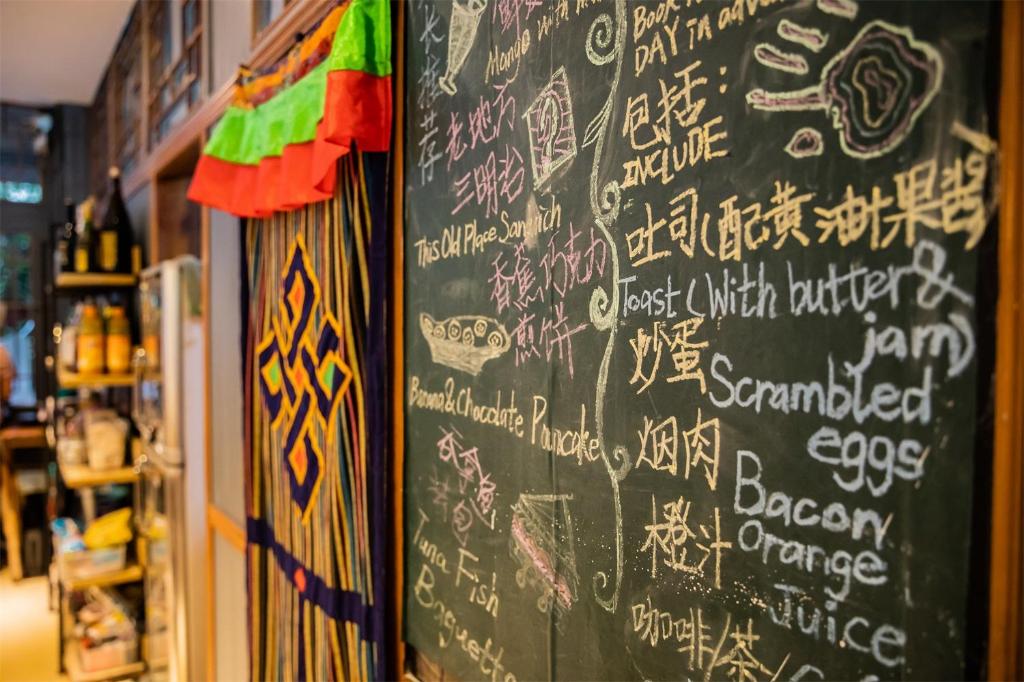 长桥荐
Mango with
老地方
三明治
This Old Place Sandwich
香蕉巧克力
煎饼
Banana & Chocolate Pancake
Tuna Fish
Baguette
Book
DAY in adva
包括：
INCLUDE
吐司(配黄油&果酱
Toast (With butter &
jam)
炒蛋
Scrambled
eggs
烟肉
Bacon
橙汁
Orange
Juice
咖啡/茶